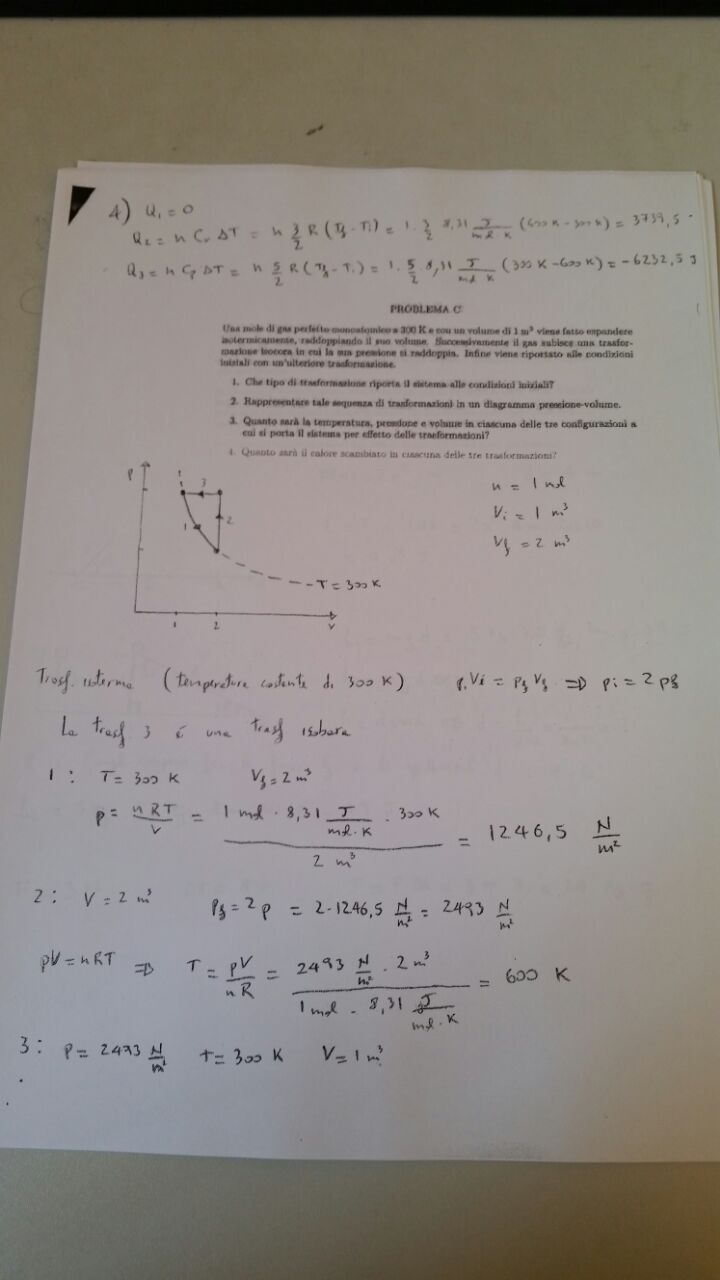 4) Q₁ = 0
Q₂ = n Cv ΔT = n 3/2 R (Tf - Ti) = 1 · 3/2 8,31 J/mol·K (600 K - 300 K) = 3739,5
Q₃ = n Cp ΔT = n 5/2 R (Tf - Ti) = 1 · 5/2 · 8,31 J/mol K (300 K - 600 K) = -6232,5 J
PROBLEMA C
Una mole di gas perfetto monoatomico a 300 K e con un volume di 1 m³ viene fatto espandere
isotermicamente, raddoppiando il suo volume. Successivamente il gas subisce una trasfor-
mazione isocora in cui la sua pressione si raddoppia. Infine viene riportato alle condizioni
iniziali con un'ulteriore trasformazione.
1. Che tipo di trasformazione riporta il sistema alle condizioni iniziali?
2. Rappresentare tale sequenza di trasformazioni in un diagramma pressione-volume.
3. Quanto sarà la temperatura, pressione e volume in ciascuna delle tre configurazioni a
cui si porta il sistema per effetto delle trasformazioni?
4. Quanto sarà il calore scambiato in ciascuna delle tre trasformazioni?
P
3
2
1
T = 300 K
1 2 V
n = 1 mol
Vi = 1 m³
Vf = 2 m³
Trasf. isoterma (temperatura costante di 300 K) pi Vi = pf Vf ⇒ pi = 2 pf
La trasf 3 é una trasf isobara
1 : T = 300 K Vf = 2 m³
p = nRT/V = 1 mol · 8,31 J/mol·K · 300 K / 2 m³ = 1246,5 N/m²
2 : V = 2 m³ Pf = 2 p = 2 · 1246,5 N/m² = 2493 N/m²
pV = nRT ⇒ T = pV/nR = 2493 N/m² · 2 m³ / 1 mol · 8,31 J/mol·K = 600 K
3 : P = 2493 N/m² T = 300 K V = 1 m³